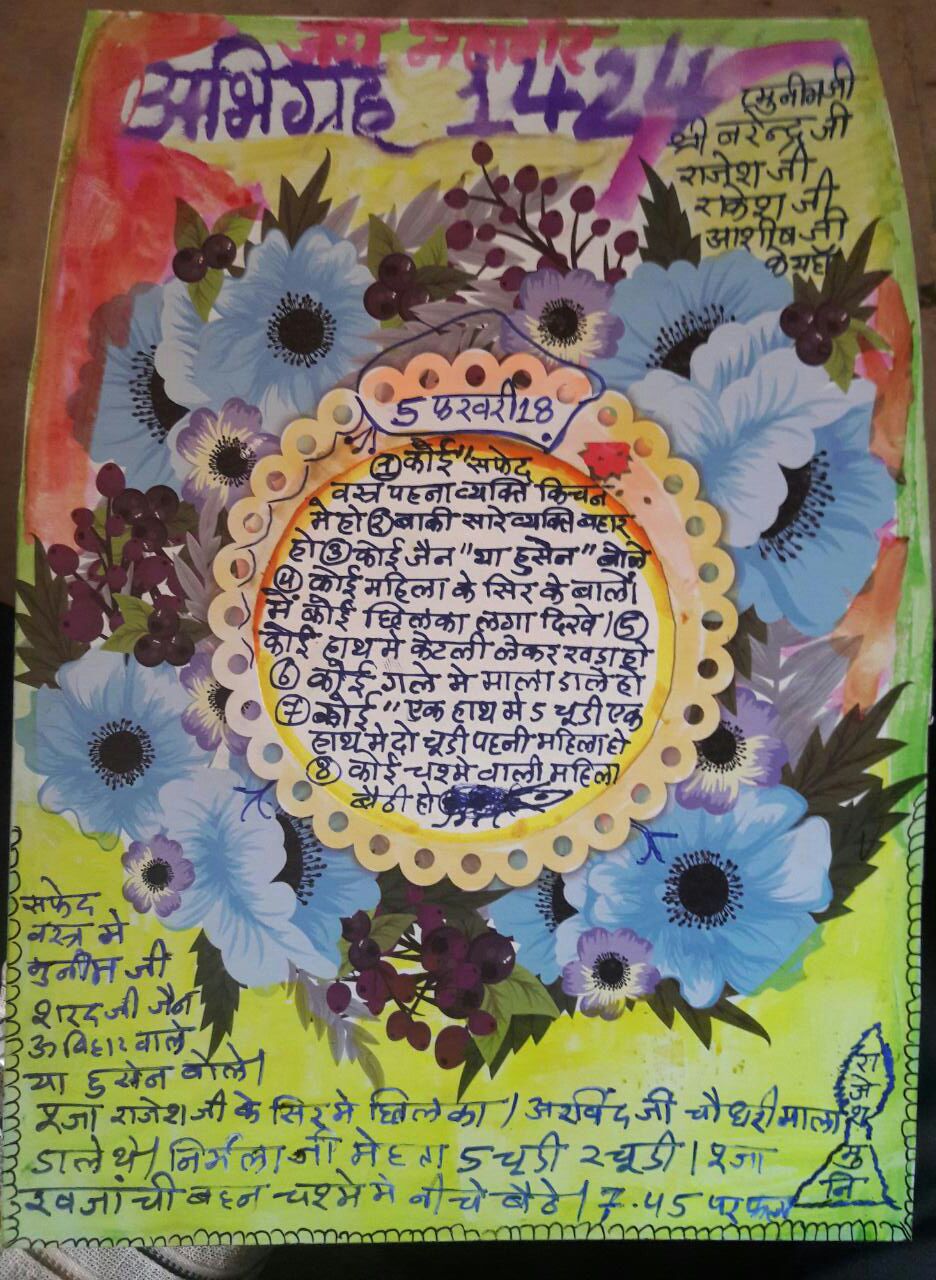 जय महावीर
अभिग्रह 1424
मुनीमजी
श्री नरेन्द्र जी
राजेश जी
राकेश जी
आशीष जी
के यहाँ
5 फरवरी 18
① कोई "सफेद
वस्त्र पहना व्यक्ति किचन
मे हो ② बाकी सारे व्यक्ति बहार
हो ③ कोई जैन "या हुसैन" बोले
④ कोई महिला के सिर के बालों
में कोई छिलका लगा दिखे। ⑤
कोई हाथ मे केटली लेकर खड़ा हो
⑥ कोई गले मे माला डाले हो
⑦ कोई "एक हाथ मे 5 चूडी एक
हाथ मे दो चूडी पहनी महिला हो
⑧ कोई चश्मे वाली महिला
बैठी हो
सफेद
वस्त्र मे
मुनीम जी
शरद जी जैन
ऊ विहार वाले
या हुसेन बोले।
श्जा राजेश जी के सिर मे छिलका। अरविंद जी चौधरी माला
डाले थे। निर्मला जी मेहता 5 चूडी २ चूडी। श्जा
खजांची बहन चश्मे मे नीचे बैठे। 7.45 पर फला
राजेश मुनि